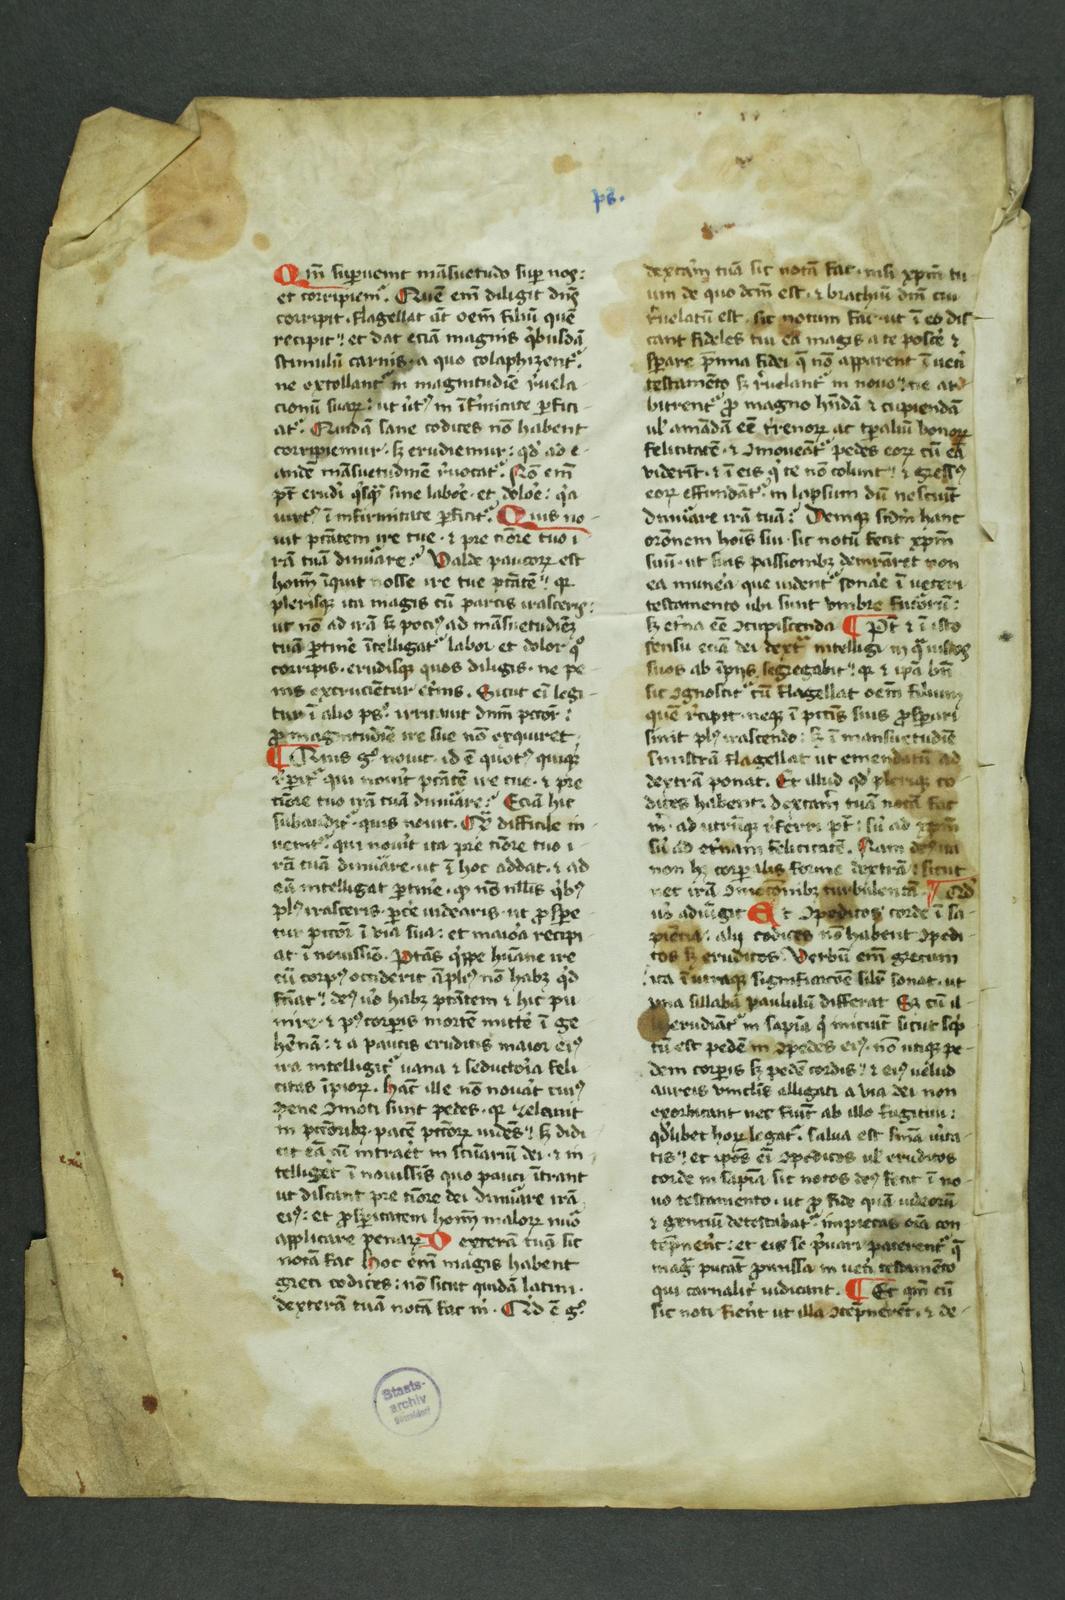 ps.
Qm̄ suꝑuenit mā̄suetudo suꝑ nos:
et corripiem̄. Quē em̄ diligit dn̄s
corripit. flagellat aūt oēm filiū quē
recipit: et dat eciā magnis q̇busdā
stimulū carnis. a quo colaphizent̄.
ne extollant̄ in magnitudīe r̄uela-
cionū suaꝝ: ut u̇tꝰ in ī̄firmitate ꝑfici-
at̄. Quidā sane codices nō habent
corripiemur. sꝫ erudiemur: qd̄ ad e-
andē mā̄suetudinēm r̄uocat̄. Nō em̄
pt̄ erudi q̇sq̄ sine laboꝛe. et doloꝛe: q̇a
uirtꝰ ī infirmitate ꝑficit̄. Quis no-
uit ptātem ire tue. ⁊ pre tīore tuo i-
rā tuā dinūare? Valde paucoꝝ est
homī īquit nosse ire tue ptātē: qꝛ
plerisqꝫ ita magis cū parcis irasceris:
ut nō ad irā sꝫ pociꝰ ad mā̄suetudiēꝫ
tuā ꝑtine īt̄elligat̄ labor et dolor qͦ
corripis. erudisqꝫ quos diligis. ne pe-
nis excrucientur et̄nis. Sicut ei legi-
tur ī alio ps̄. irritauit dn̄m pctoꝛ:
ꝓ magnitudīe ire sue nō exquiret.
¶ Quis gͦ nouit. id ē quotꝰ quisqꝫ
r̄ꝑit̄ qui nouit ptātē ire tue. ⁊ pre
tīore tuo irā tuā dinūare? Eciā hic
subaudit̄ quis nouit. Qd̄ difficile in-
uenit̄ qui nouit ita pre tīore tuo i-
rā tuā dinūare. ut ī hoc addat. ⁊ ad
eā intelligat ꝑtine. qꝛ nō nllis q̇bꝰ
plꝰ irasceris. ꝑcē uidearis. ut ꝓspe-
tur pctoꝛ ī via sua: et maioꝛa recipi-
at ī nouissīo. Ptās q̇ppe huāne ire
cū corpꝰ occiderit āpliꝰ nō habꝫ qd̄
fāt: deꝰ uͦo habꝫ ptātem ⁊ hic pu-
nire. ⁊ pꝰ corꝑis mortē mitte ī ge-
hēnā: ⁊ a paucis eruditis maior eiꝰ
ira intelligit̄ uana ⁊ seductoꝛia feli-
citas īpioꝝ. Hāc ille nō nouāt cuiꝰ
pene ꝯmoti sunt pedes. qꝛ ꝫelauit
in pctoꝛibꝫ. pacē pctoꝝ uidēs: sꝫ didi-
cit eā cū intraet in sc̄uariū dei. ⁊ in-
telliget ī nouissīs quo pauci ītrant
ut discant pre tīore dei dinūare irā
eiꝰ: et ꝓsperitatem homī maloꝝ nūo
applicare penaꝝ Dexterā tuā sic
notā fac hoc em̄ magis habent
greci codices: nō sicut quidā latini.
dexterā tuā notā fac m̄. Qd ē gͦ
dextām tuā sic notā fac. nisi xpm̄ tu-
um de quo dcm̄ est. ⁊ brachiū dn̄i cui
r̄uelatū est. sic notum fac. ut ī eo dis-
cant fideles tui ea magis a te posce ⁊
sperare p̄mia fidei q̄ nō apparent ī ueti
testamēto sꝫ r̄uelant̄ in nouo: ne ar-
bitrent̄ ꝓ magno hn̄dā ⁊ cupiendā
ul̄ amādā eē t̄renoꝝ ac tꝑaliū bonoꝝ
felicitatē. ⁊ ꝯmoueāt̄ pedes eoꝝ cū ea
viderīt. ⁊ ī eis q̇ te nō colunt: ⁊ gressꝰ
eoꝝ effundāt̄. in lapsum dū nesciūt
dinūare irā tuā: Deniqꝫ scdm̄ hanc
oronem hoīs sui. sic notū fecit xpm̄
suū. ut suis passionibꝫ demrāret non
ea munēa que uident̄ sonāe ī ueteri
testamento ubi sunt umbre futuroꝝ:
sꝫ et̄na eē ꝯcupiscenda ¶ Pt̄ ⁊ ī isto
sensu eciā dei dext̄ā intelligi in q̄ uisōs
suos ab īpijs segregabit: qꝛ ⁊ ip̄a bn̄
sic ꝯgnoscit̄ cū flagellat oēm filium
quē r̄cipit. neqꝫ ī pctis suis ꝓsperari
sinit plꝰ irascendo: sꝫ ī mansuetudīe
sinistrā flagellat ut emendatū ad
dextrā ponat. Et illud qd̄ pleriqꝫ co-
dices habent. dextam̄ tuā notā fac
m̄. ad utrūqꝫ r̄ferri pt̄: sū ad xpm̄
sū ad et̄nam felicitatē. Nam deꝰ ita
non hꝫ corꝑalis forme dextrā: sicut
nec irā ꝯmocōmbꝫ turbulentā. ¶ Qd
uͦo adiūgit Et ꝯpeditos corde ī sa-
piēcia. alij codices nō habent ꝯpedi-
tos sꝫ eruditos. Verbū em̄ grecum
ita ī utraqꝫ significacōe sil̄r sonat. ut
una sillaba paululū differat. Sꝫ cū il-
li erudiāt̄ in sapīa q̇ iniciūt sicut scͥp-
tū est pedē in ꝯpedes eiꝰ. nō utiqꝫ pe-
dem corꝑis sꝫ pedē cordis: ⁊ eiꝰ uelud
aureis vinclis alligati a via dei non
exorbitant nec fiūt ab illo fugitiui:
qd̄libet hoꝝ legat̄. salua est snīa u̇ita-
tis: et ip̄os eī ꝯpeditos ul̄ eruditos
corde in sapīa. sic notos deꝰ fecit ī no-
uo testamento. ut ꝓ fide quā uideoꝝ
⁊ genciū detestabat̄ impietas oīa con-
tēpnēt: et eis se p̄uari paterent̄ q̄
mag putāt ꝓmissa in ueti testamēto
qui carnalit̄ iudicant. ¶ Et qm̄ cū
sic noti fieīt ut illa ꝯtēpnerēt. ⁊ de-
Staats-
archiv